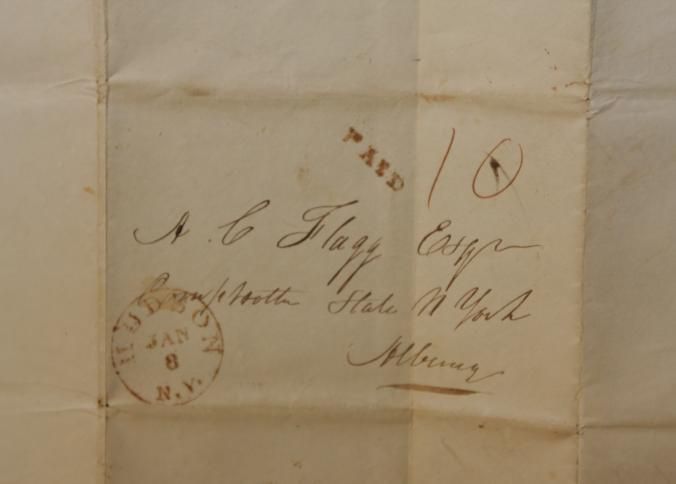 PAID 10
A. C. Flagg Esqr
Comptroller State N York
Albany
HUDSON
JAN
8
N.Y.